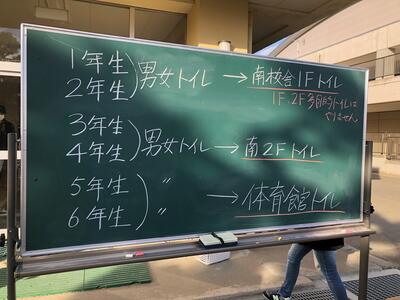 1年生
2年生 男女トイレ → 南校舎1Fトイレ
1F、2F多目的トイレは
やりません。
3年生
4年生 男女トイレ → 南2Fトイレ
5年生
6年生 〃 → 体育館トイレ